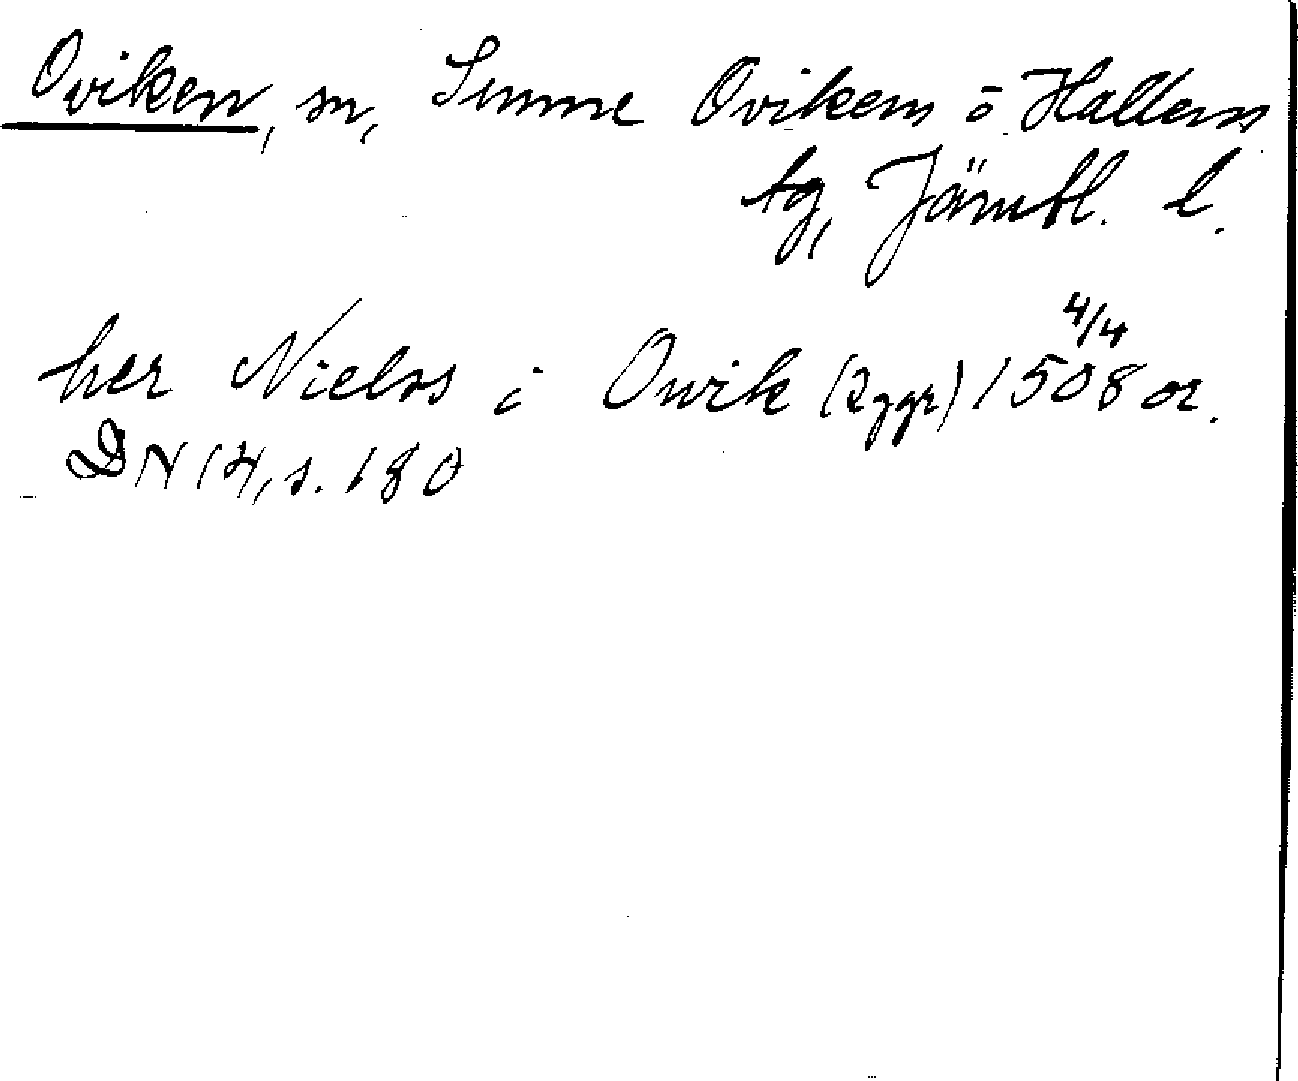 Oviken, sn, Sunne Ovikens o Hallens
tg, Jämtl. l.
her Nielss i Owik (2ggr) 1508 4/4 or.
DN 14, s. 180